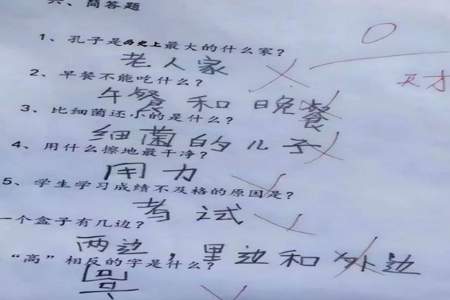 六、简答题
0
1、孔子是历史上最大的什么家？
老人家
天才
2、早餐不能吃什么？
午餐和晚餐
3、比细菌还小的是什么？
细菌的儿子
4、用什么擦地最干净？
用力
5、学生学习成绩不及格的原因是？
考试
一个盒子有几边？
两边，里边和外边
“高”相反的字是什么？